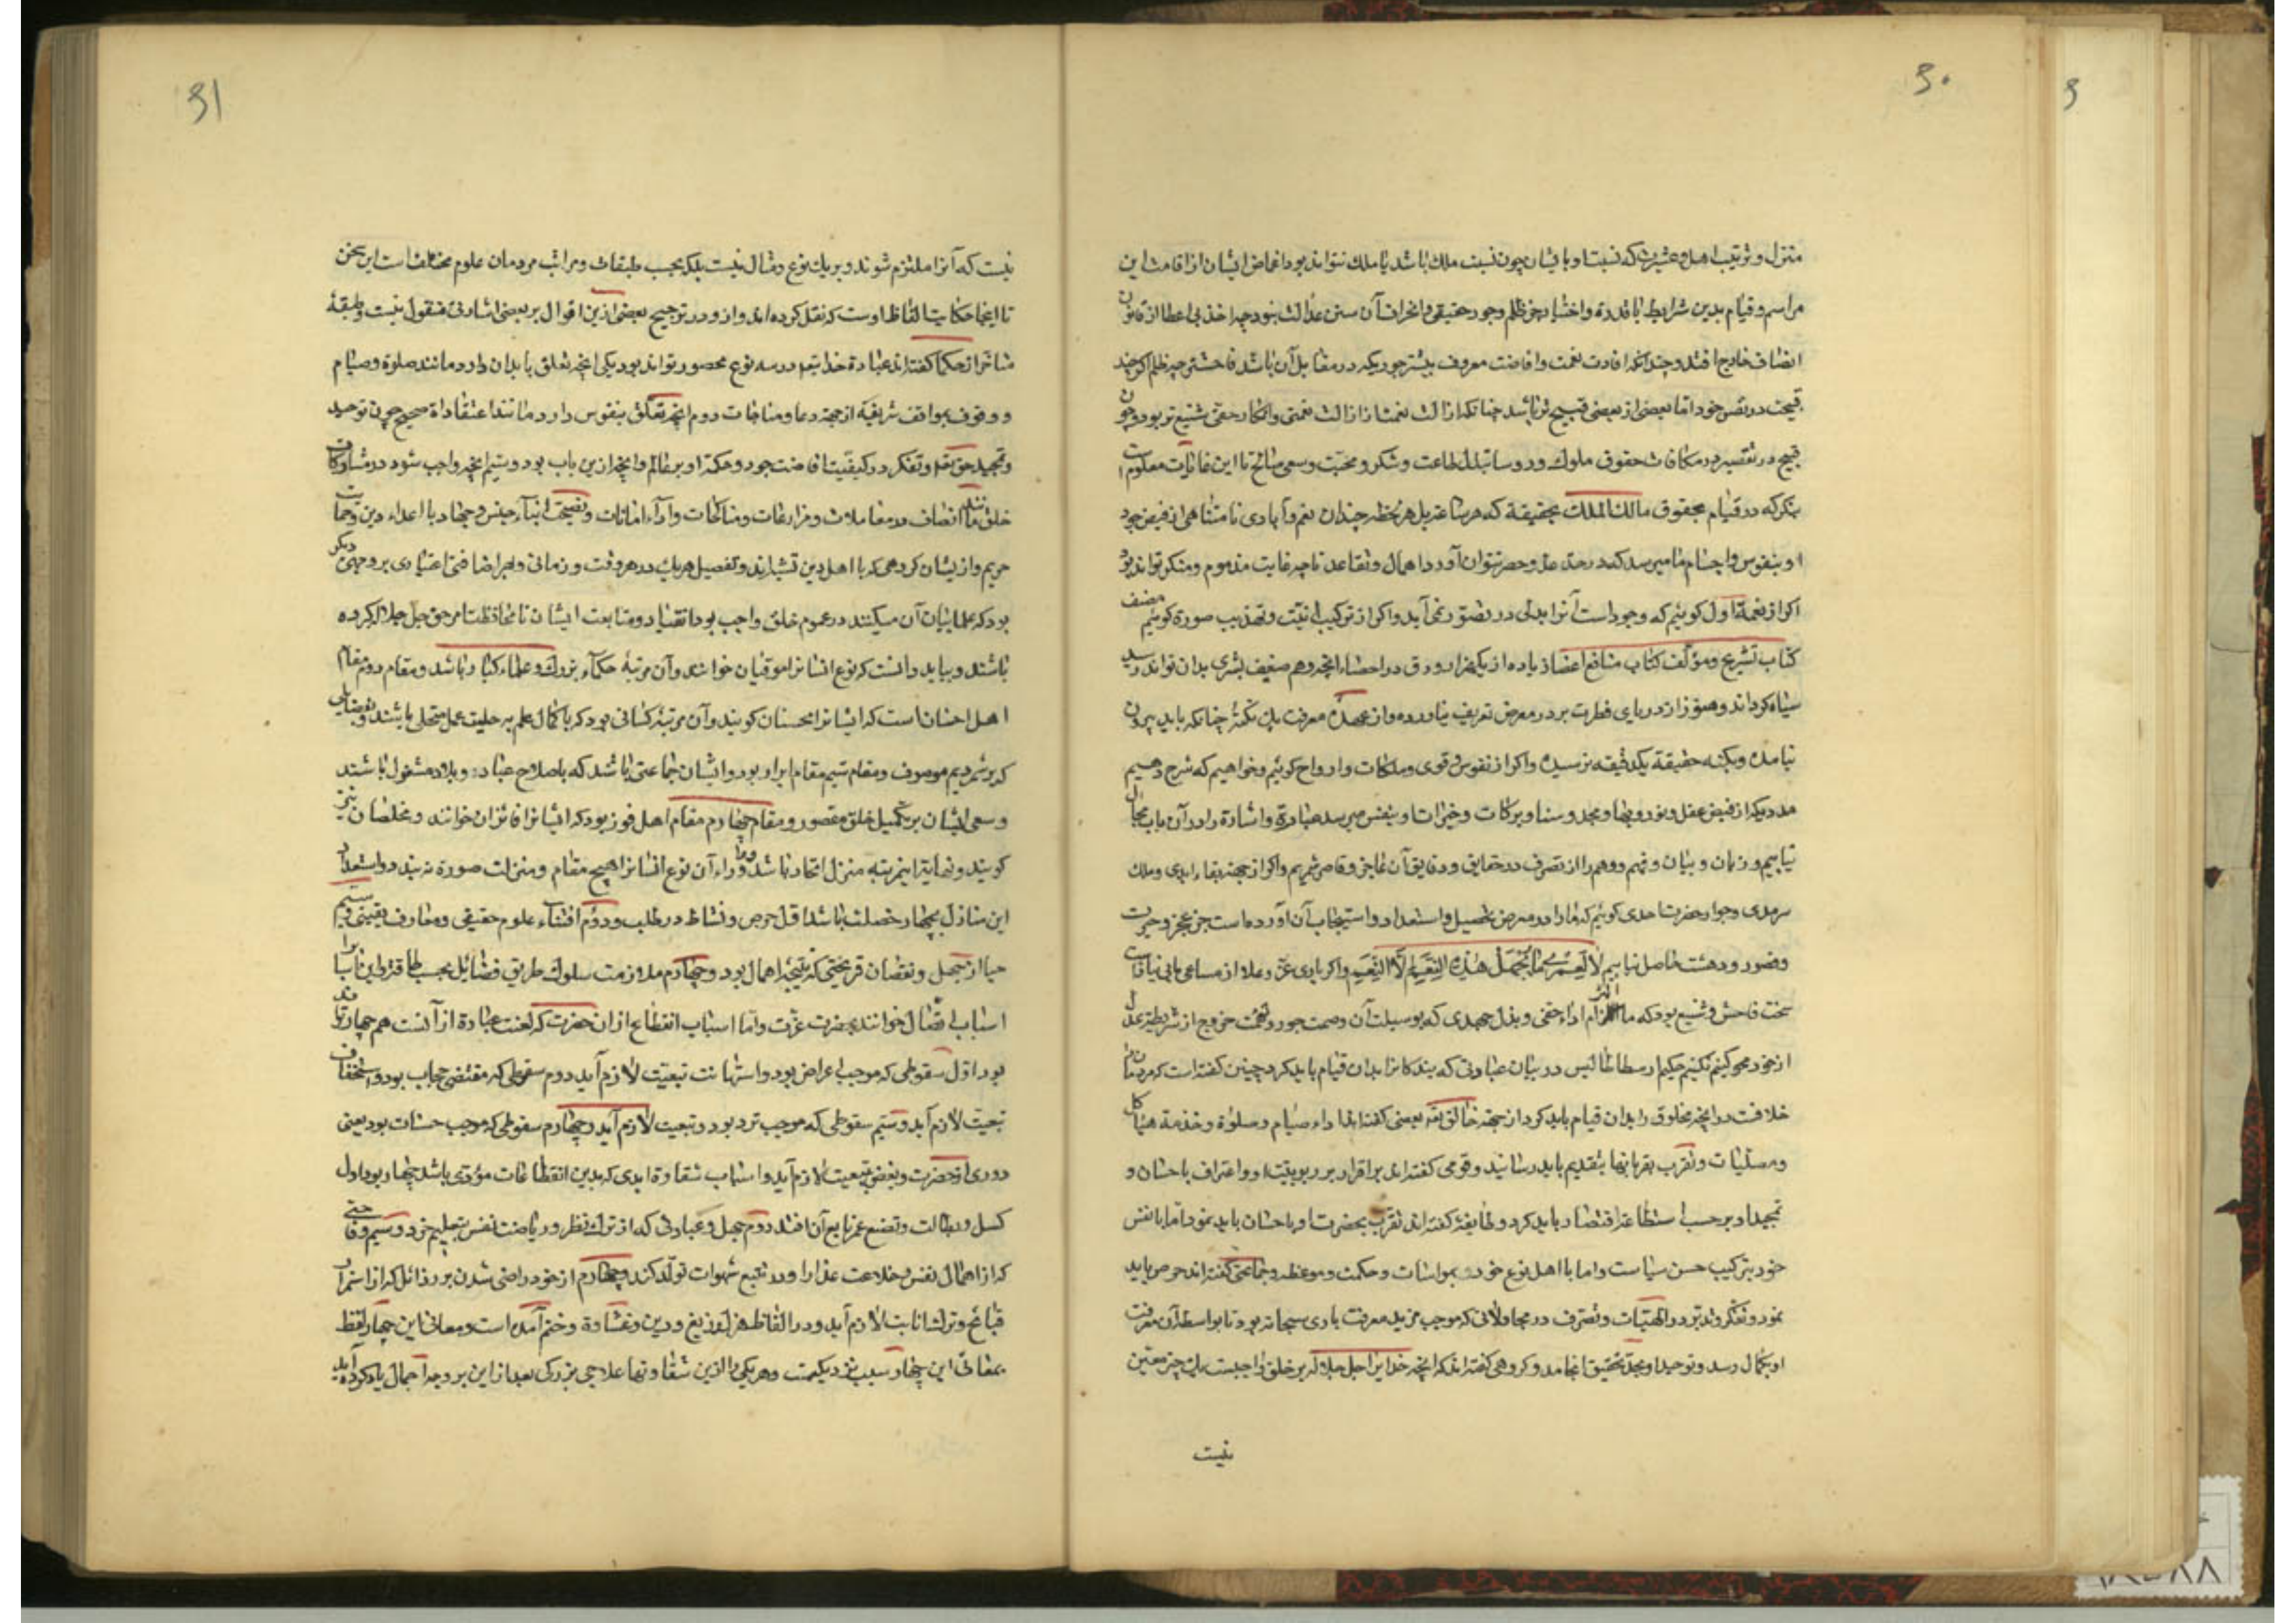 ۳۰
منزل و ترتیب اهل و عشیرت که نسبت او با ایشان چون نسبت ملک باشد با ملک نتواند بود اغماض ایشان از اقامت این
مراسم و قیام بدین شرایط با قدرة و اختیار جز ظلم و جور حقیقی و انحراف آن سنن عدالت نبود چه اخذ بی اعطا از قانون
انصاف خارج افتد و چندانکه افادت نعمت و افاضت معروف بیشتر جوریکه در مقابل آن باشد فاحش‌تر چه ظلم اگر چند
قبیحت در نفس خود اما بعضی از بعضی قبیح‌تر باشد چنانکه ازالت نعمتی از ازالت نعمتی و انکار حقی شنیع‌تر بود و چون
قبح در تقصیر در مکافات حقوق ملوک و روسا ببذل طاعت و شکر و محبت و سعی صالح تا این غایات معلوم است
بنگر که در قیام بحقوق مالک الملک بحقیقة که هر ساعة بل هر لحظه چندان نعم و ایادی نامتناهی از فیض جود
او بنفوس و اجسام ما میرسد که در حد عد و حصر نتوان آورد اهمال و تقاعد تا چه غایت مذموم و منکر تواند بود
اگر از نعمة اول گوئیم که وجود است آنرا بدلی در تصور نمی آید و اگر از ترکیب بنیت و تهذیب صورة گوئیم مصنف
کتاب تشریح و مؤلف کتاب منافع اعضا زیاده از یکهزار ورق در احصاء انچه وهم ضعیف بشری بدان تواند رسید
سیاه کرده‌اند و هنوز از دریای قطرت بر در معرض تعریف نیاورده و از عهدهٔ معرفت یک نکتهٔ چنانکه باید بیرون
نیامده و بکنه حقیقة یک دقیقه نرسیده و اگر از نفوس و قوی و ملکات و ارواح گوئیم و خواهیم که شرح دهیم
مدد دیگر از فیض عقل و نور و بها و مجد و سنا و برکات و خیرات او بنفس میرسد عبارة و اشارة را در آن باب مجال
نیابیم و زبان و بیان و فهم و وهم را از تصرف در حقایق و دقایق آن عاجز و قاصر شمریم و اگر از جهة بقاء ابدی و ملک
سرمدی و جوار حضرت احدی گوئیم که ما را در معرض تحصیل و استعداد و استیجاب آن آورده است جز عجز و حیرت
و قصور و دهشت حاصل نیابیم لا لعمری ما یجهل هذه النعم الا النعم و اگر باری عز و علا از مساعی ما بی نیاز است
سخت فاحش و شنیع بود که ما التزام اداء حقی و بذل جهدی که بوسیلت آن وصمت جور و تهمت خروج از شریطه عدل
از خود محو کنیم نکنیم حکیم ارسطاطالیس در بیان عبادتی که بندکانرا بدان قیام باید کرد چنین کفته است که مردمانرا
خلافت در انچه مخلوق را بدان قیام باید کرد از جهة خالق تعه بعضی کفته‌اند اداء صیام و صلوة و خدمة هیاکل
و مصلیات و تقرب بقربانیها بتقدیم باید رسانید و قومی کفته‌اند بر اقرار بربوبیت او و اعتراف باحسان و
تمجید او بر حسب استطاعة اقتصار باید کرد و طایفهٔ کفته‌اند تقرب بحضرت او باحسان باید نمود اما با نفس
خود بترکیب حسن سیاست و اما با اهل نوع خود بمواسات و حکمت و موعظه و جماعتی کفته‌اند حرص باید
نمود و تفکر و تدبر در الهیات و تصرف در محاولاتی که موجب مزید معرفت باری سبحانه بود تا بواسطه آن معرفت
او بکمال رسد و توحید او بحد تحقیق انجامد و کروهی کفته‌اند که انچه خدایرا جل جلاله بر خلق واجبست یک چیز معین
نیست
۳۱
نیست که آنرا ملتزم شوند و بر یک نوع و مثال نیست بلکه بحسب طبقات و مراتب مردمان علوم مختلف است این سخن
تا اینجا حکایت الفاظ اوست که نقل کرده‌اند و از و در ترجیح بعضی ازین اقوال بر بعضی اشارتی منقول نیست و طبقهٔ
متاخر از حکما کفته‌اند عبادة خدا تعه در سه نوع محصور تواند بود یکی انچه تعلق بابدان دارد مانند صلوة و صیام
و وقوف بمواقف شریفه از جهة دعا و مناجات دوم انچه تعلق بنفوس دارد مانند اعتقاداة صحیح چون توحید
و تمجید حق تعه و تفکر در کیفیت افاضت جود و حکمة او بر عالم و انچه ازین باب بود و سیم انچه واجب شود در مشارکات
خلق مانند انصاف در معاملات و مزارعات و مناکحات و ادآء امانات و نصیحت ابنآء جنس و جهاد با اعداء دین و حمایت
حریم و از یشان کروهی که با اهل دین و تفصیل هر یک در هر وقت و زمانی و بهر اضافتی اعتباری بر وجهی دیگر
بود که علما بیان آن میکنند در عموم خلق واجب بود انقیاد و متابعت ایشان تا محافظت امر حق جل جلاله کرده
باشند و بباید دانست که نوع انسانرا موقنان خوانند و آن مرتبهٔ حکمآء بزرک و علماء کبار باشد و مقام دوم مقام
اهل احسانست که ایشانرا محسنان کویند و آن مرتبهٔ کسانی بود که با کمال علم به حلیت عمل متحلی باشند و بفضایلی
که بر شمردیم موصوف و مقام سیم مقام ابرار بود و ایشان جماعتی باشند که باصلاح عباد و بلاد مشغول باشند
و سعی ایشان بر تکمیل خلق مقصور و مقام چهارم مقام اهل فوز بود که ایشانرا فائزان خوانند و مخلصان نیز
کویند و نهایت این مرتبه منزل اتحاد باشد و ورآء آن نوع انسانرا هیچ مقام و منزلت صورة نبندد و استعداد
این منازل بچهار خصلت باشد اول حرص و نشاط در طلب و دوم اقتناء علوم حقیقی و معارف یقینی و سیم
حیا از جهل و نقصان قریحتی که نتیجه اهمال بود و چهارم ملازمت سلوک طریق فضائل بحسب طاقة و این اسبابرا
اسباب اتصال خوانند بحضرت عزت و اما اسباب انقطاع از ان حضرت که لعنت عبارة از آنست هم چهار تواند
بود اول سقوطی که موجب اعراض بود و استهانت تبعیت لازم آید دوم سقوطی که مقتضی حجاب بود و استخفاف
تبعیت لازم آید و سیم سقوطی که موجب ترد بود و تبعیت لازم آید و چهارم سقوطی که موجب خسات بود یعنی
دوری از حضرت و بغض بتبعیت لازم آید و اسباب شقاوة ابدی که بدین انقطاعات مؤدی باشد چهار بود اول
کسل و بطالت و تضیع عمر تابع آن افتد دوم جهل و غباوتی که از ترک نظر و ریاضت نفس بتعلیم خیزد و سیم وقاحتی
که از اهمال نفس و خلاعت عذارا و در تتبع شهوات تولد کند و چهارم از خود راضی شدن بر رذائل که از استمرار
قبائح و ترک انابت لازم آید و در الفاظ زیغ و رین و غشاوة و ختم آمده است و معانی این چهار لفظ
بمعانی این چهار سبب نزدیکست و هر یکی را ازین شقاوتها علاجی بزرکی بعد از این بر وجه اجمال یاد کرده آید